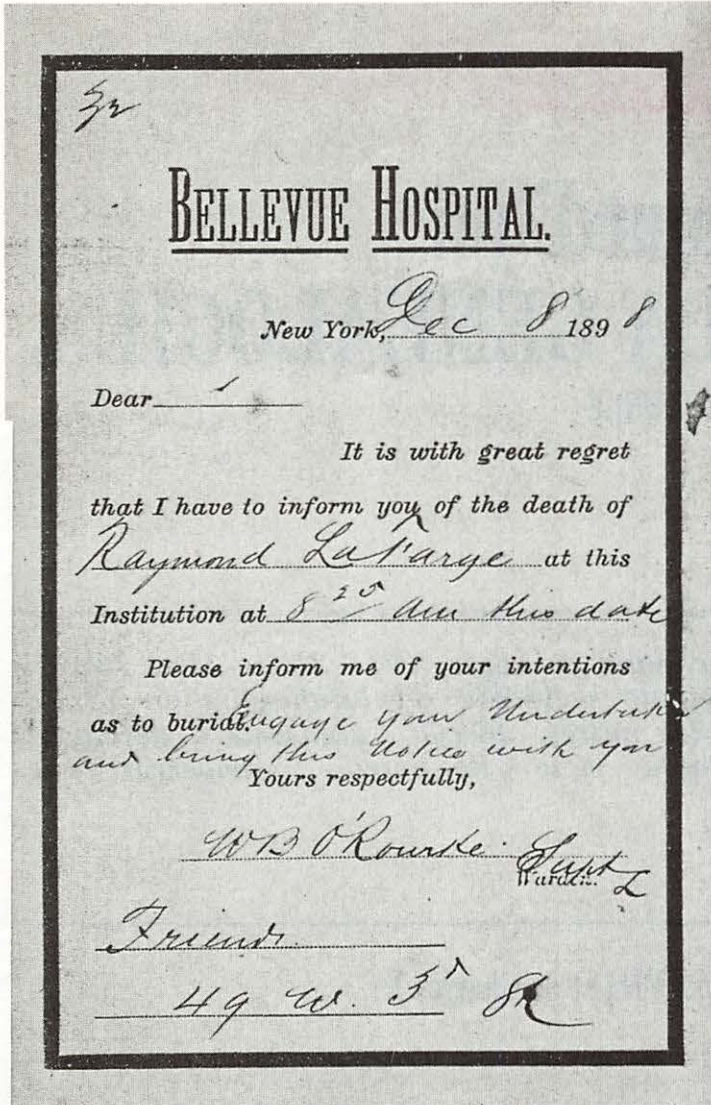 BELLEVUE HOSPITAL.
New York, Dec 8 1898
Dear
It is with great regret
that I have to inform you of the death of
Raymond LaFarge at this
Institution at 8 25 am this date
Please inform me of your intentions
as to burial. Engage your Undertaker
and bring this Notice with you
Yours respectfully,
WB O'Rourke. Supt
Warden.
Friend
49 W. 3d St